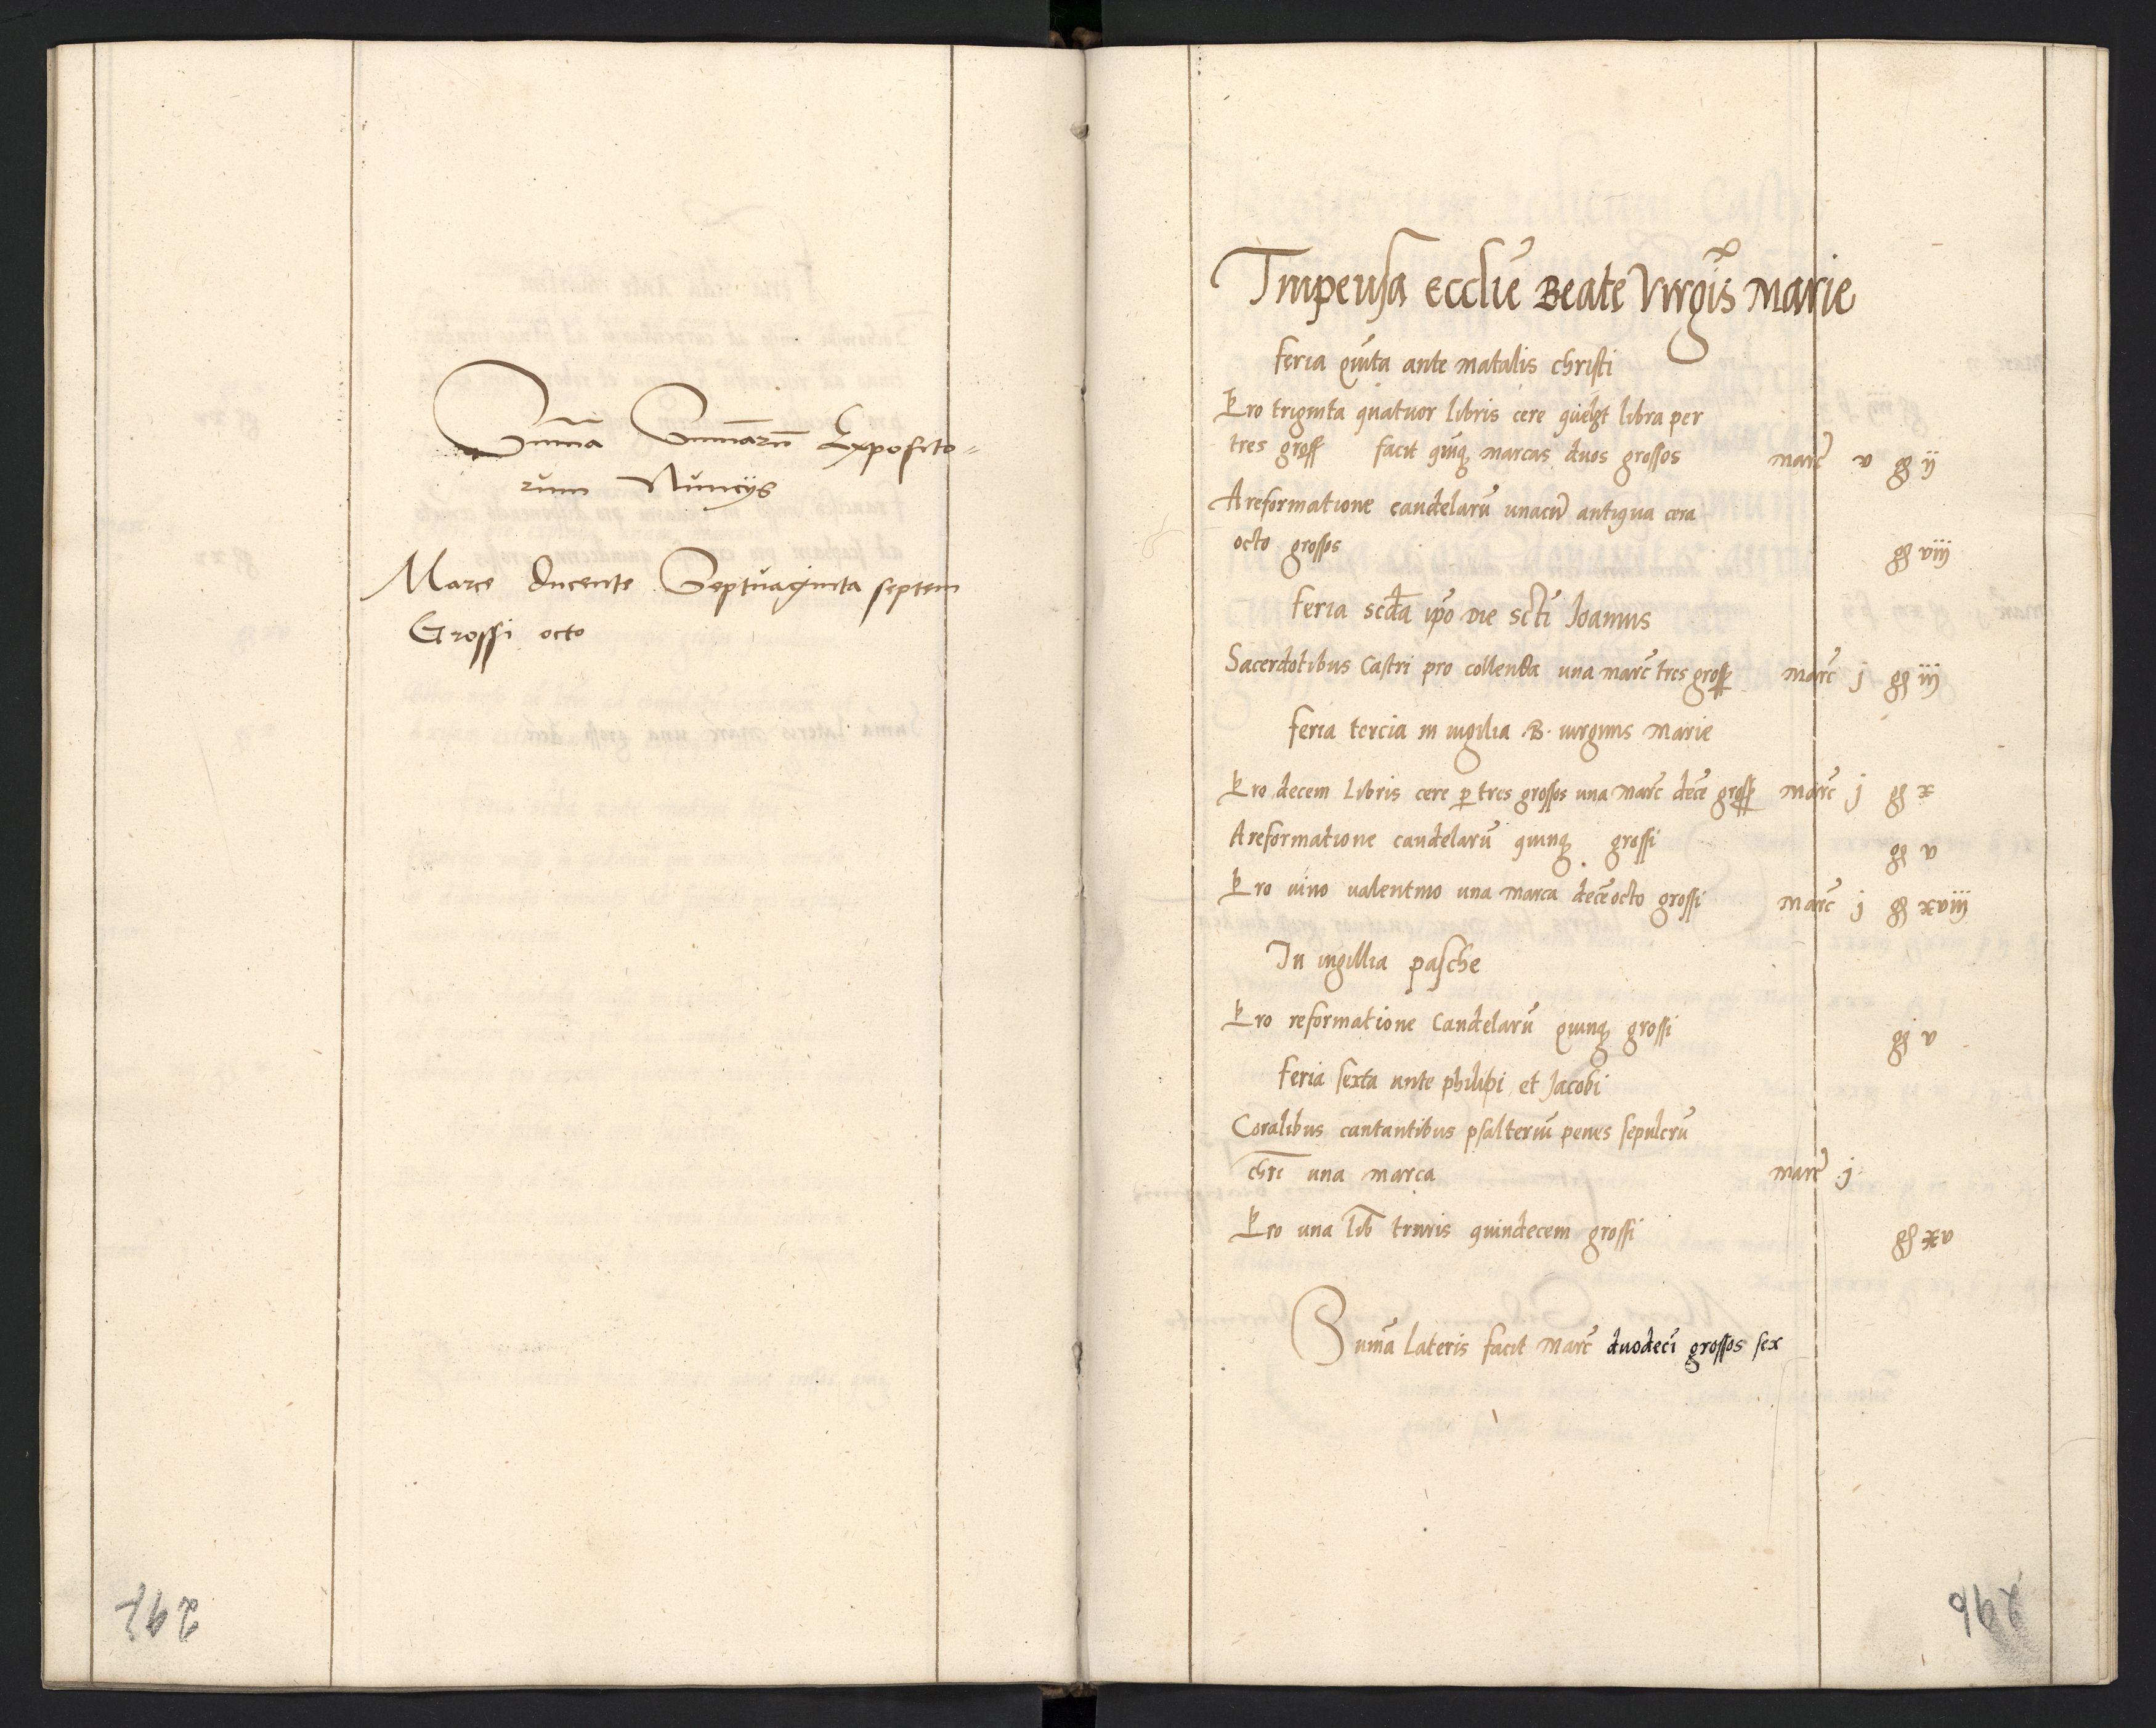 Suma Sumaru Exposito=
rum Nuncÿs
Marce ducente Septuaginta septem
Grossi octo
297
Impensa Ecclie Beate Virgis Marie
feria quita ante natalis christi
Pro triginta quatuor libris cere quelzt libra per
tres gross facit quiq marcas duos grossos marc v gs ij
A reformatione candelaru unacu antiqua cera
octo grossos gs viij
feria scda ipo die scti Joannis
Sacerdotibus Castri pro collenda una marc tres gross marc j gs iij
feria tercia in vigilia B. virginis Marie
Pro decem libris cere p tres grossos una marc dece gross marc j gs x
A reformatione candelaru quinq grossi gs v
Pro vino valentino una marca deceocto grossi marc j gs xviij
In vigillia pasche
Pro reformatione Candelaru quinq grossi gs v
feria sexta ante philipi et Jacobi
Coralibus cantantibus psalteriu penes sepulcru
chri una marca marc j
Pro una lib truris quindecem grossi gs xv
Suma lateris facit marc duodeci grossos sex
296